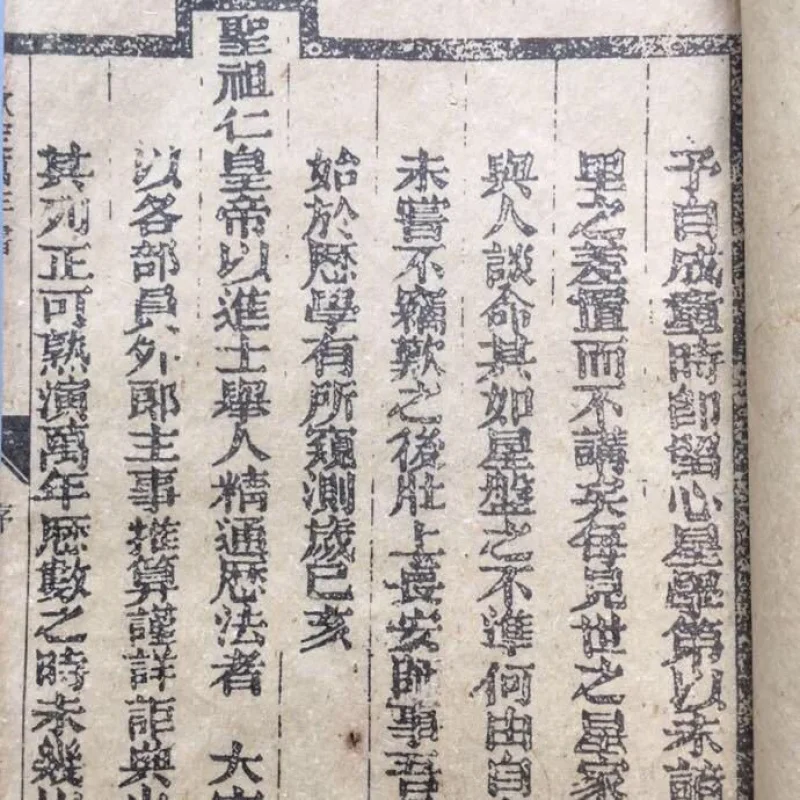 予自成童時即留心星學第以未諳
里之差置而不講矣每見世之星家
與人談命其如星盤之不準何由自
未嘗不竊歎之後壯上長安師事吾
始於歷學有所窺測歲己亥
聖祖仁皇帝以進士舉人精通歷法者 大
以各部員外郎主事推算謹詳詎與
其列正可熟演萬年歷數之時未幾
序